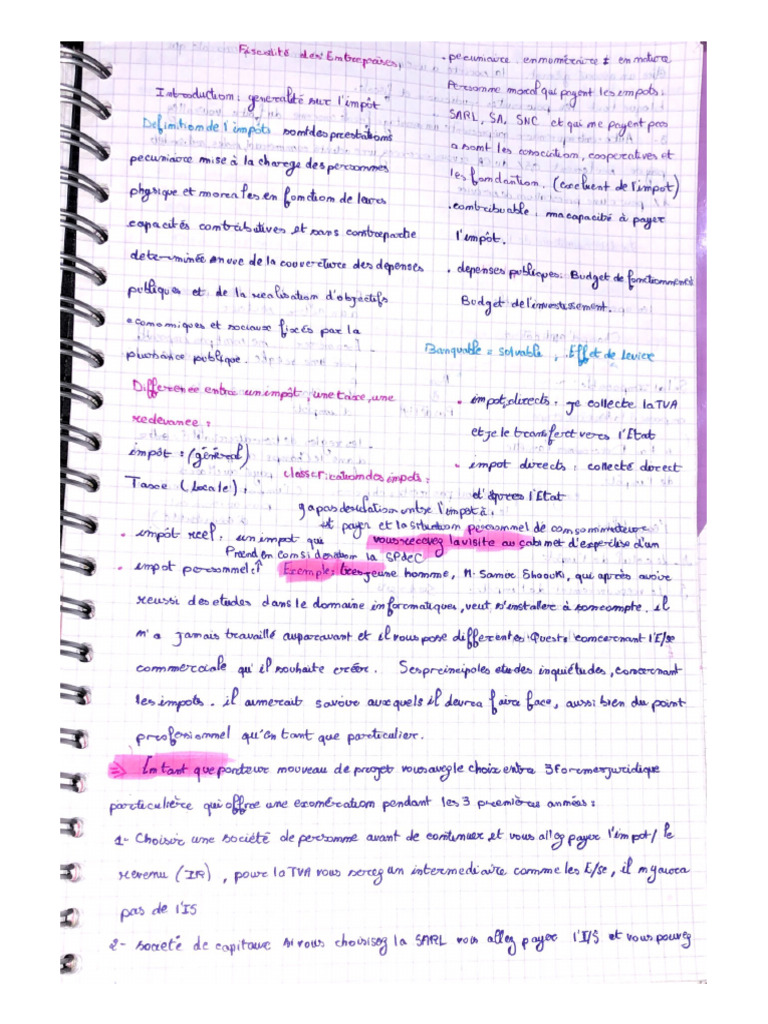 Fiscalité des Entreprises,
Introduction: generalité sur l'impôt
Definition de l'impôt: sont des prestations
pecuniaire mise à la charge des personnes
physique et morales en fonction de leurs
capacités contributives et sans contrepartie
determinée en vue de la couverture des depenses
publiques et de la realisation d'objectifs
economiques et sociaux fixés par la
puissance publique.
Difference entre un impôt, une taxe, une
redevance:
impôt: (général)
Taxe (locale),
. pecuniaire en numéraire ≠ en nature
Personne moral qui payent les impots:
SARL, SA, SNC et qui ne payent pas
sont les association, cooperatives et
les fondantion. (excluent de l'impot)
. contribuable: ma capacité à payer
l'impôt.
. depenses publiques: Budget de fonctionnement
Budget de l'investissement.
Banquable = solvable, Effet de levier
. impot directs. je collecte la TVA
et je le transferet vers l'Etat
. impot directs: collecté direct
d'après l'Etat
classification des impots:
y a pas de relation entre l'impot à
et payer et la situation personnel de consommateur
. impôt reel: un impot qui vous recevez la visite au cabinet d'expertise d'un
Prend en consideration la SPdeC
. impot personnel:↑ Exemple: très jeune homme, M. Samer Shaouki, qui après avoir
reussi des etudes dans le domaine informatiques, veut s'installer à son compte. il
n'a jamais travaillé auparavant et il vous pose differentes Quest° concernant l'E/se
commerciale qu'il souhaite créer. Ses principoles etudes inquiétudes, concernant
les impots. il aimerait savoir auxquels il devra faire face, aussi bien du point
professionnel qu'en tant que particulier.
⇒ En tant que porteur nouveau de projet vous avez le choix entre 3 formes juridique
particulière qui offre une exonération pendant les 3 premières années:
1- Choisir une société de personne avant de continuer, et vous allez payer l'impot/ le
revenu (IR), pour la TVA vous serez un intermediaire comme les E/se, il n'y aura
pas de l'IS
2- societé de capitaux si vous choisisez la SARL vous allez payer l'I/S et vous pouvez